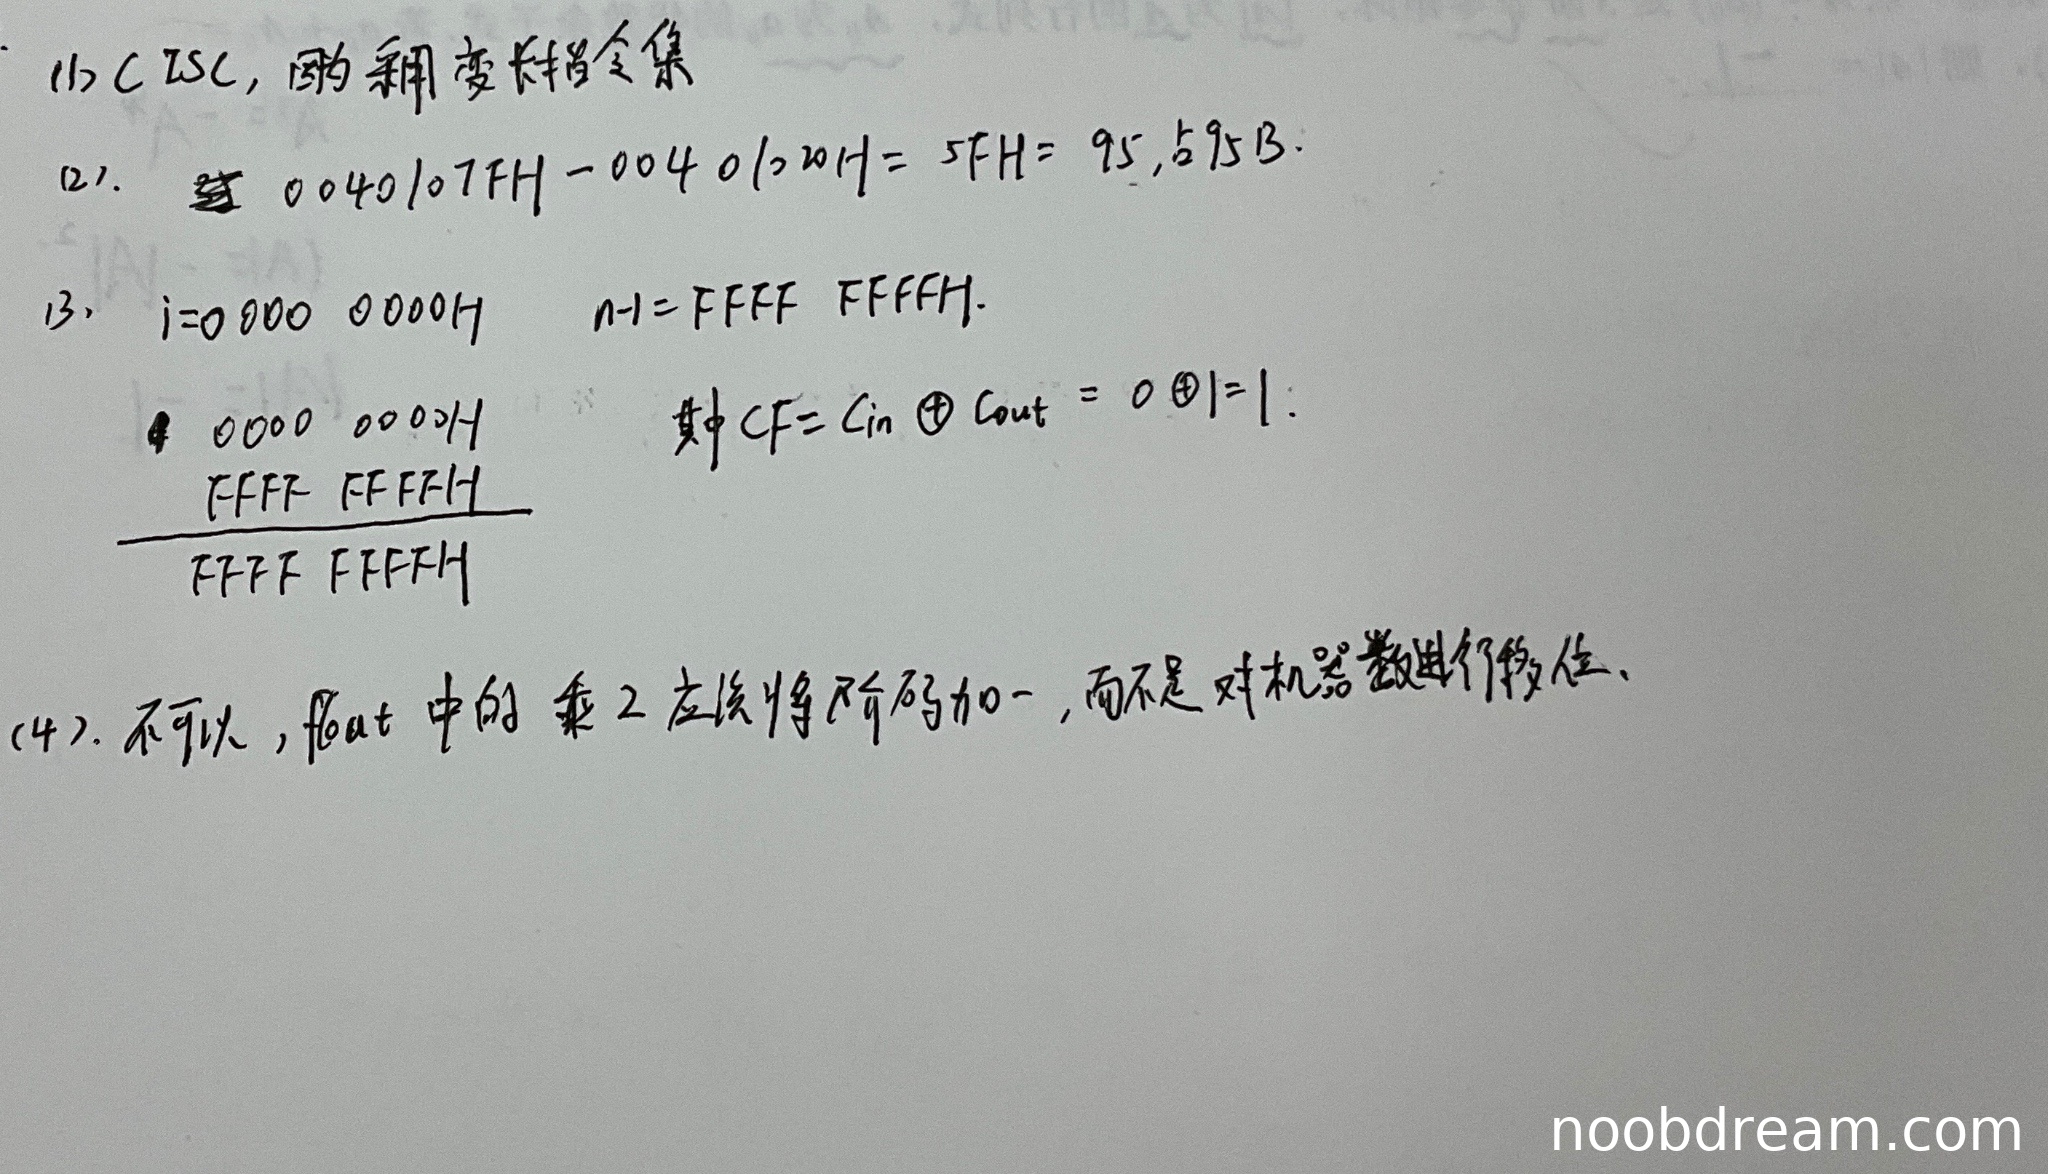 (1) CISC, 因为采用变长指令集
(2). 0040107FH - 00401020H = 5FH = 95, 占95B.
(3) i=0000 0000H n-1 = FFFF FFFFH.
0000 0000H 其中 CF = Cin ⊕ Cout = 0 ⊕ 1 = 1.
FFFF FFFFH
FFFF FFFFH
(4). 不可以, float 中的乘2应该将阶码加一, 而不是对机器数进行移位.
noobdream.com